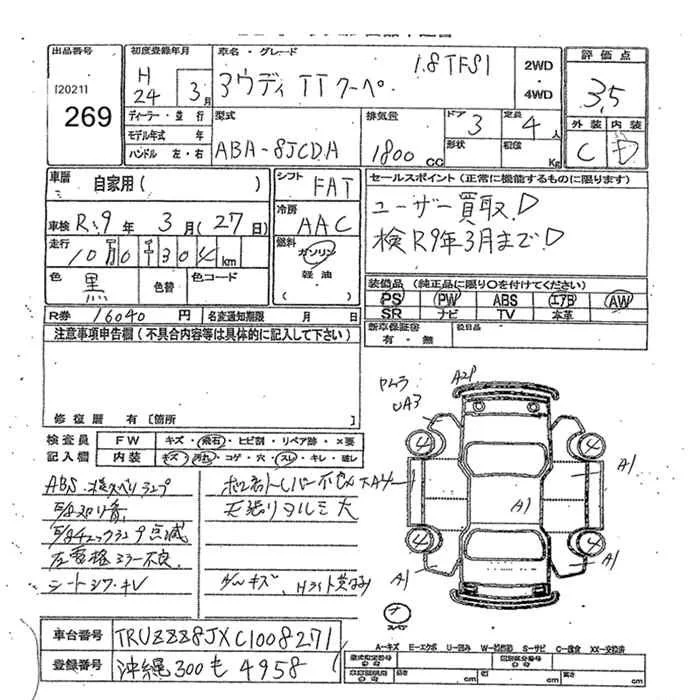 出品番号 初度登録年月 車名・グレード 評価点
[2021] 269
H 24 3月 アウディ TT クーペ 1.8TFSI 2WD・4WD 3.5
ディーラー・並行 型式 排気量 ドア 定員 外装 内装
モデル年式 年 ABA-8JCDA 1800cc 3 4人 C D
ハンドル 左・右 形状 積載 Kg
車歴 自家用( ) シフト FAT セールスポイント(正常に機能するものに限ります)
車検 R.9年 3月(27日) 冷房 AAC ユーザー買取!
走行 10万0千304km 燃料 ガソリン 検R9年3月まで!
色 黒 色替 色コード 軽油 ( )
装備品(純正品に限り○を付けてください)
PS PW ABS エアB AW
SR ナビ TV 本革
R券 16040円 名変通知期限 月 日 新車保証書 有・無 後日品
注意事項申告欄(不具合内容等は具体的に記入して下さい)
修復歴 有[箇所 ]
検査員 FW キズ・飛石・ヒビ割・リペア跡・×要
記入欄 内装 キズ・汚れ・コゲ・穴・スレ・キレ・破レ
ABS・横スベリランプ
点滅
左電格ミラー不良
シートシワ・キレ
天張りタルミ大
キズ
A2P
UA3
4 4 4 4
A1 A1 A1 A1
スペア
車台番号 TRUZZZ8JXC1008271
登録番号 沖縄300も4958
A-キズ E-エクボ U-凹み W-補修跡 S-サビ C-腐食 XX-交換済
長さ cm 幅 cm 高さ cm